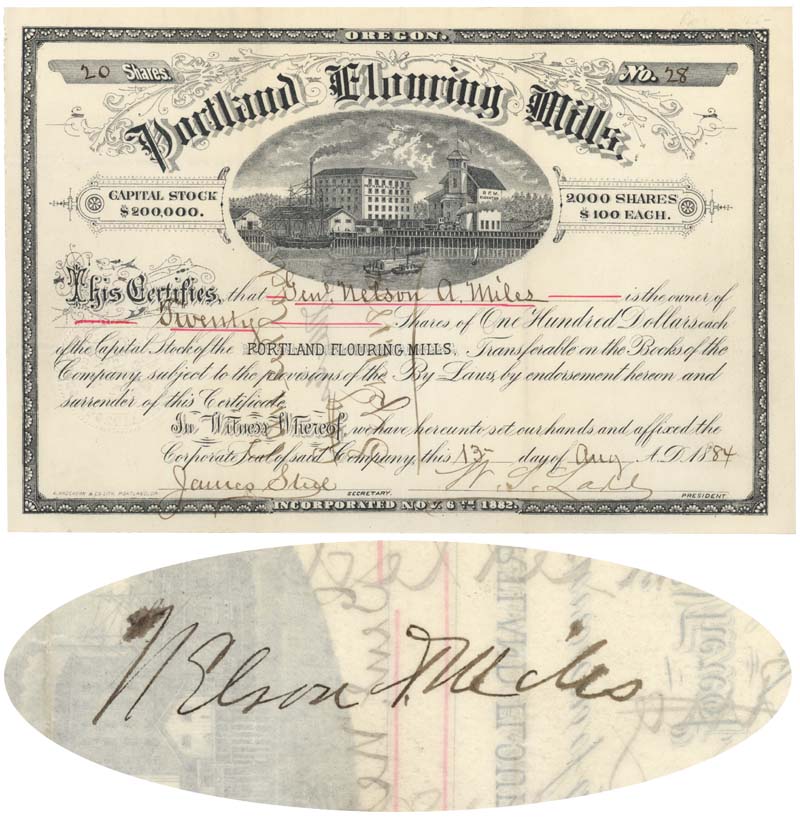 OREGON.
20 Shares.
No. 28
Portland Flouring Mills.
P.F.M.
ELEVATOR
CAPITAL STOCK
$200,000.
2000 SHARES
$100 EACH.
This Certifies, that Genl. Nelson A. Miles is the owner of
Twenty Shares of One Hundred Dollars each
of the Capital Stock of the PORTLAND FLOURING MILLS, Transferable on the Books of the
Company, subject to the provisions of the By Laws, by endorsement hereon and
surrender of this Certificate.
In Witness Whereof, we have hereunto set our hands and affixed the
Corporate Seal of said Company, this 15 day of Aug A.D. 1884
James Steel
SECRETARY.
W. S. Ladd
PRESIDENT.
INCORPORATED NOV. 6TH 1882.
Nelson A. Miles